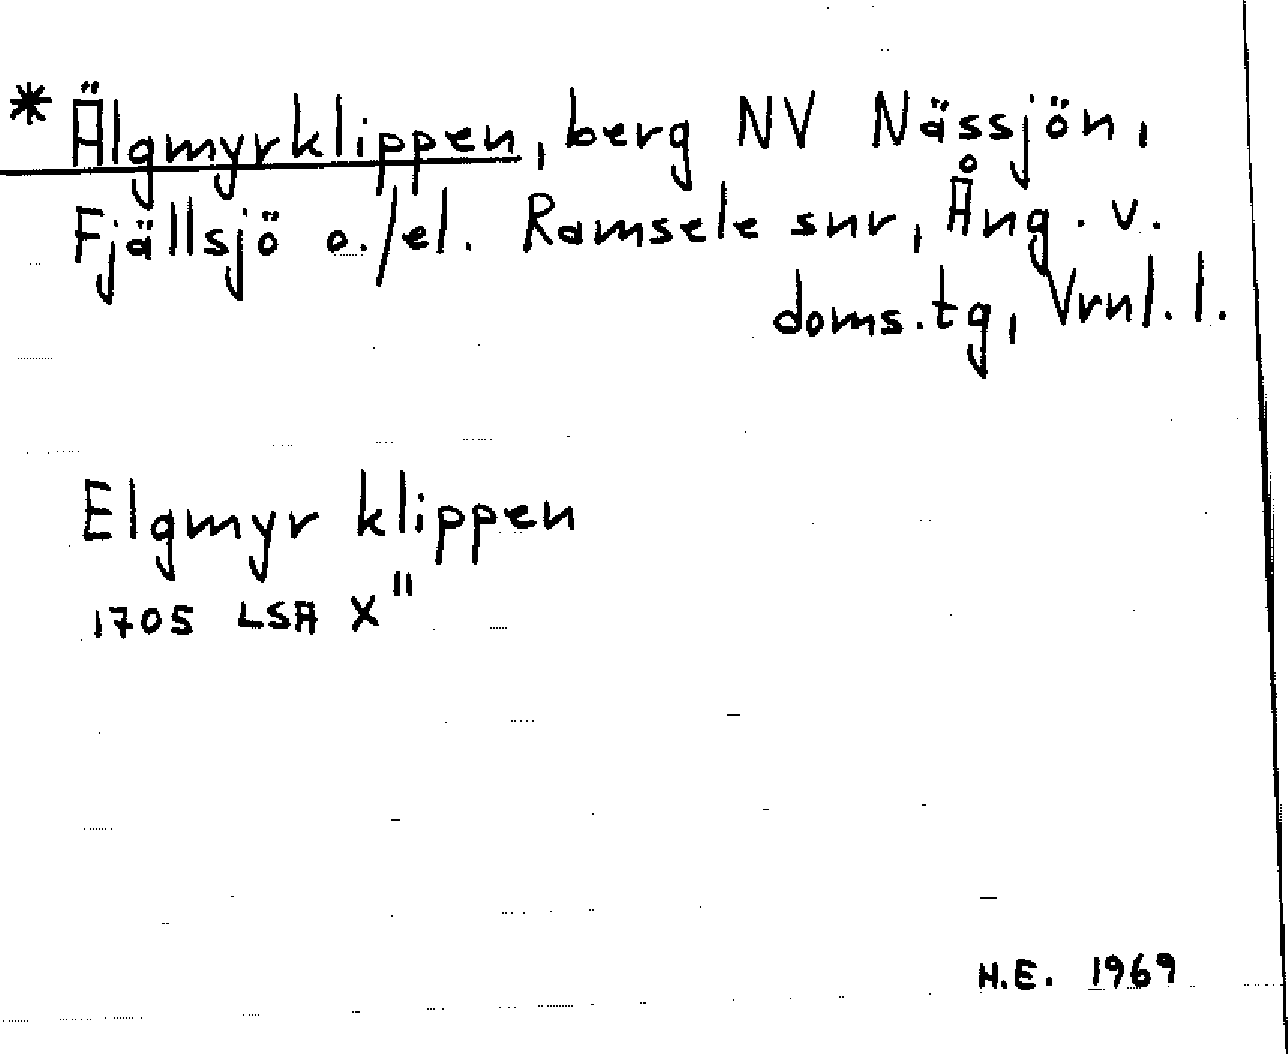 * Älgmyrklippen, berg NV Nässjön,
Fjällsjö o./el. Ramsele snr, Ång. v.
doms.tg, Vrnl. l.
Elgmyr klippen
1705 LSA X"
H.E. 1969